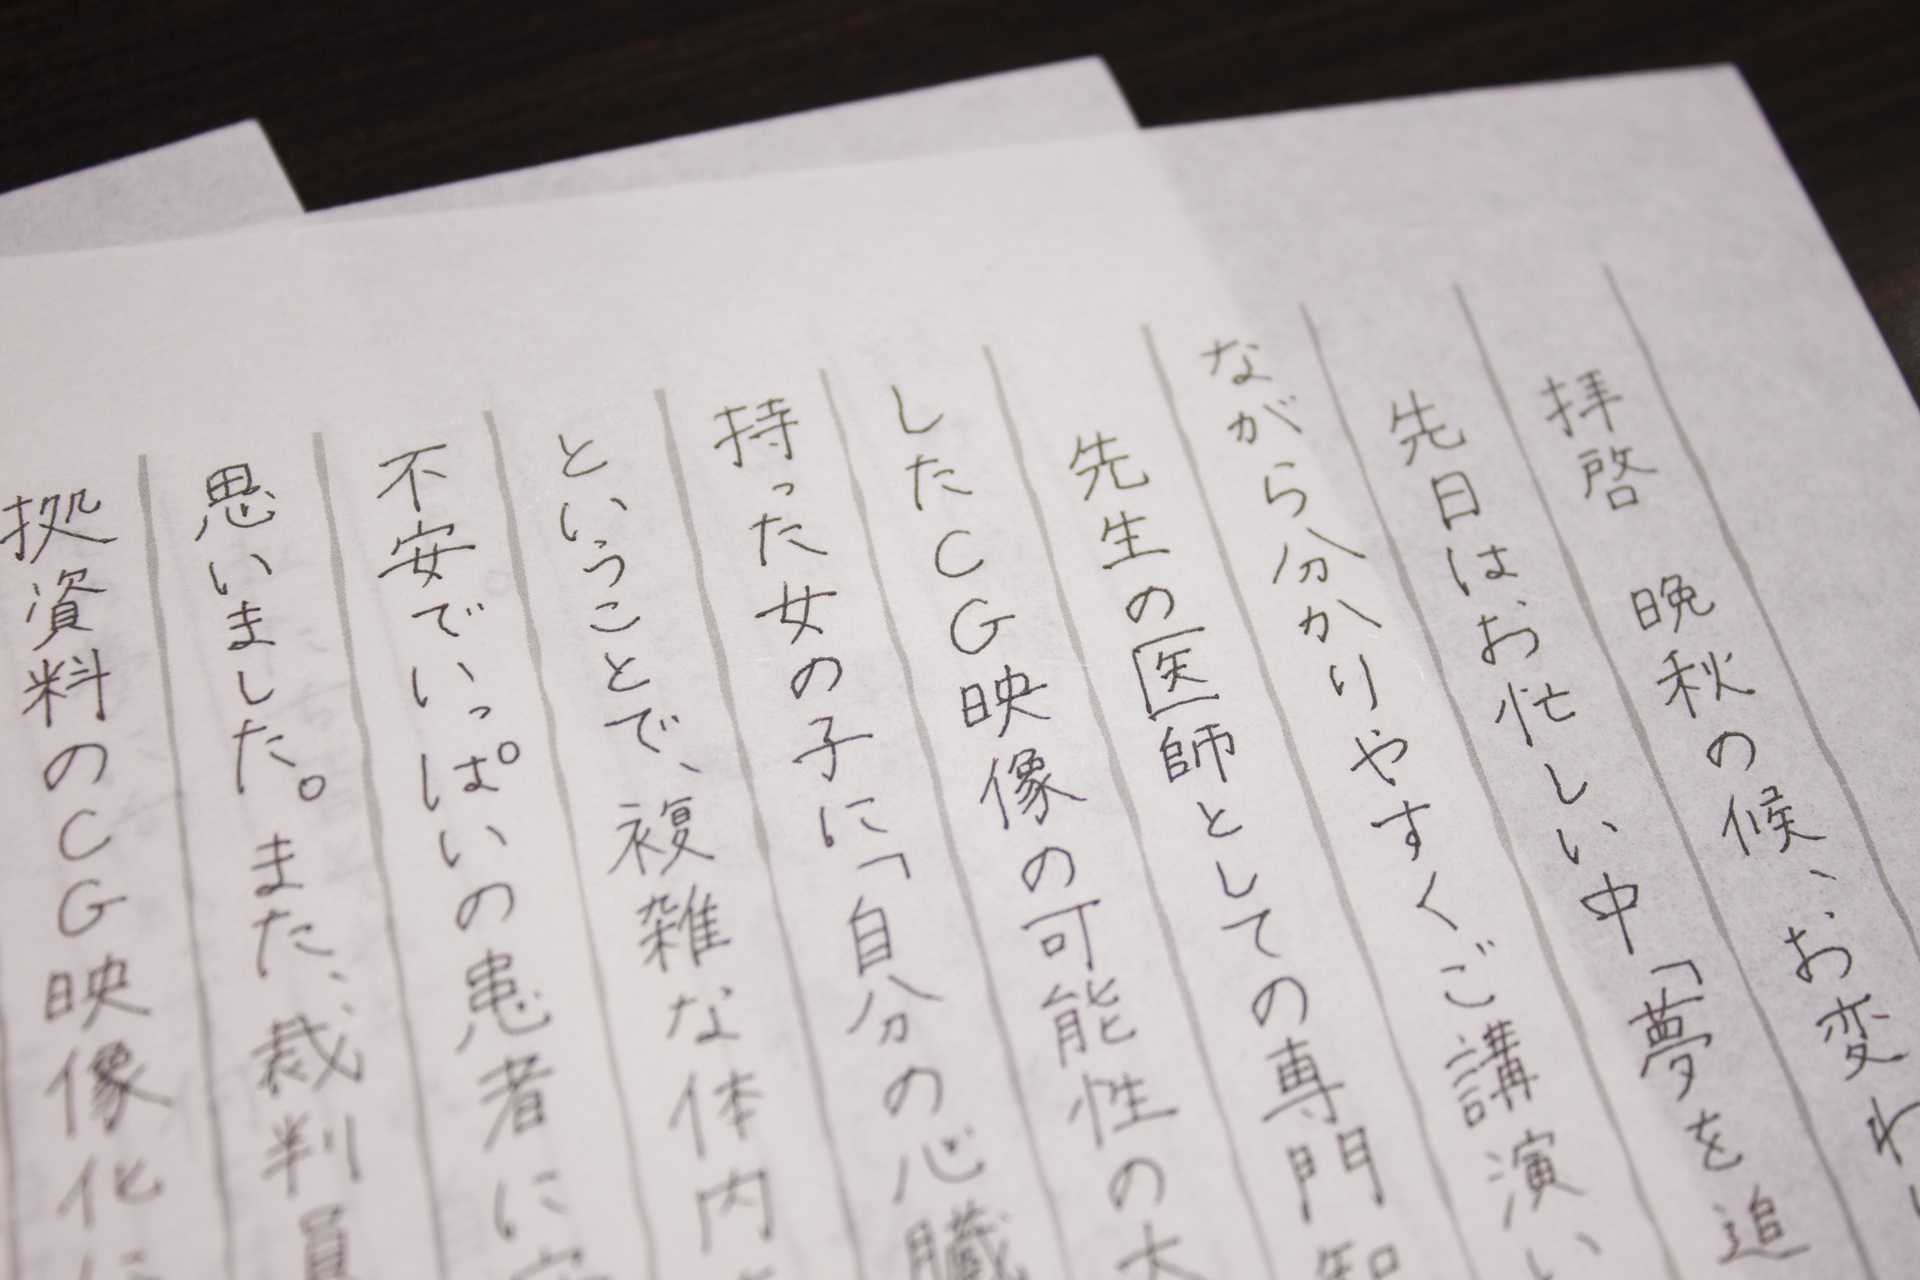 拝啓　晩秋の候、お変わ
先日はお忙しい中「夢を追
ながら分かりやすくご講演い
先生の医師としての専門知
したCG映像の可能性の大
持った女の子に「自分の心臓
ということで、複雑な体内
不安でいっぱいの患者に
思いました。また、裁判員
拠資料のCG映像化に